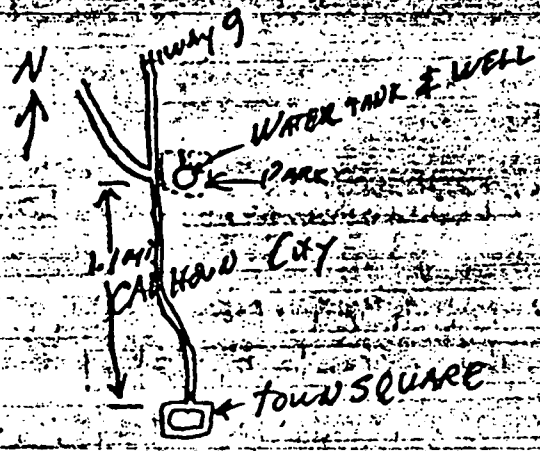 Hiway 9
N
WATER TANK & WELL
PARK
1.1 mi
CALHOUN City
TOWN SQUARE